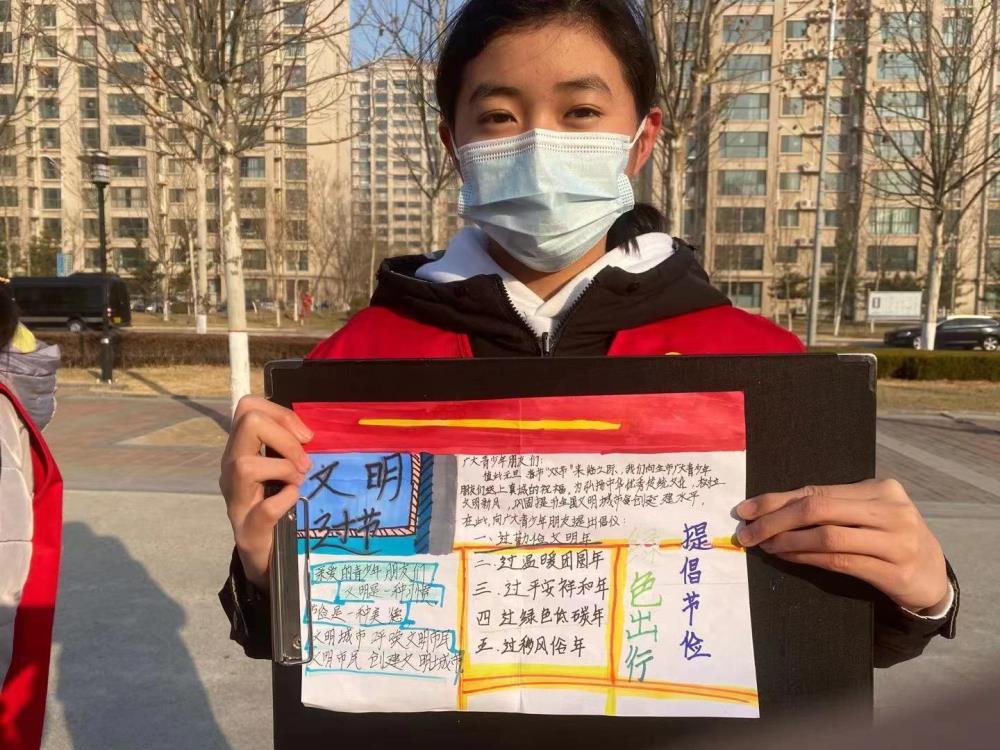 文明
过节
亲爱的青少年朋友们
文明是一种习惯
节俭是一种美德
文明城市 呼唤文明市民
文明市民 创建文明城市
广大青少年朋友们:
值此元旦、春节“双节”来临之际,我们向全市广大青少年
朋友们致上真诚的祝福。为弘扬中华优秀传统文化,树立
文明新风,巩固提升全国文明城市创建水平,
在此,向广大青少年朋友提出倡仪:
一、过勤俭文明年
二、过温暖团圆年
三、过平安祥和年
四 过绿色低碳年
五、过 风俗年
绿色出行
提倡节俭